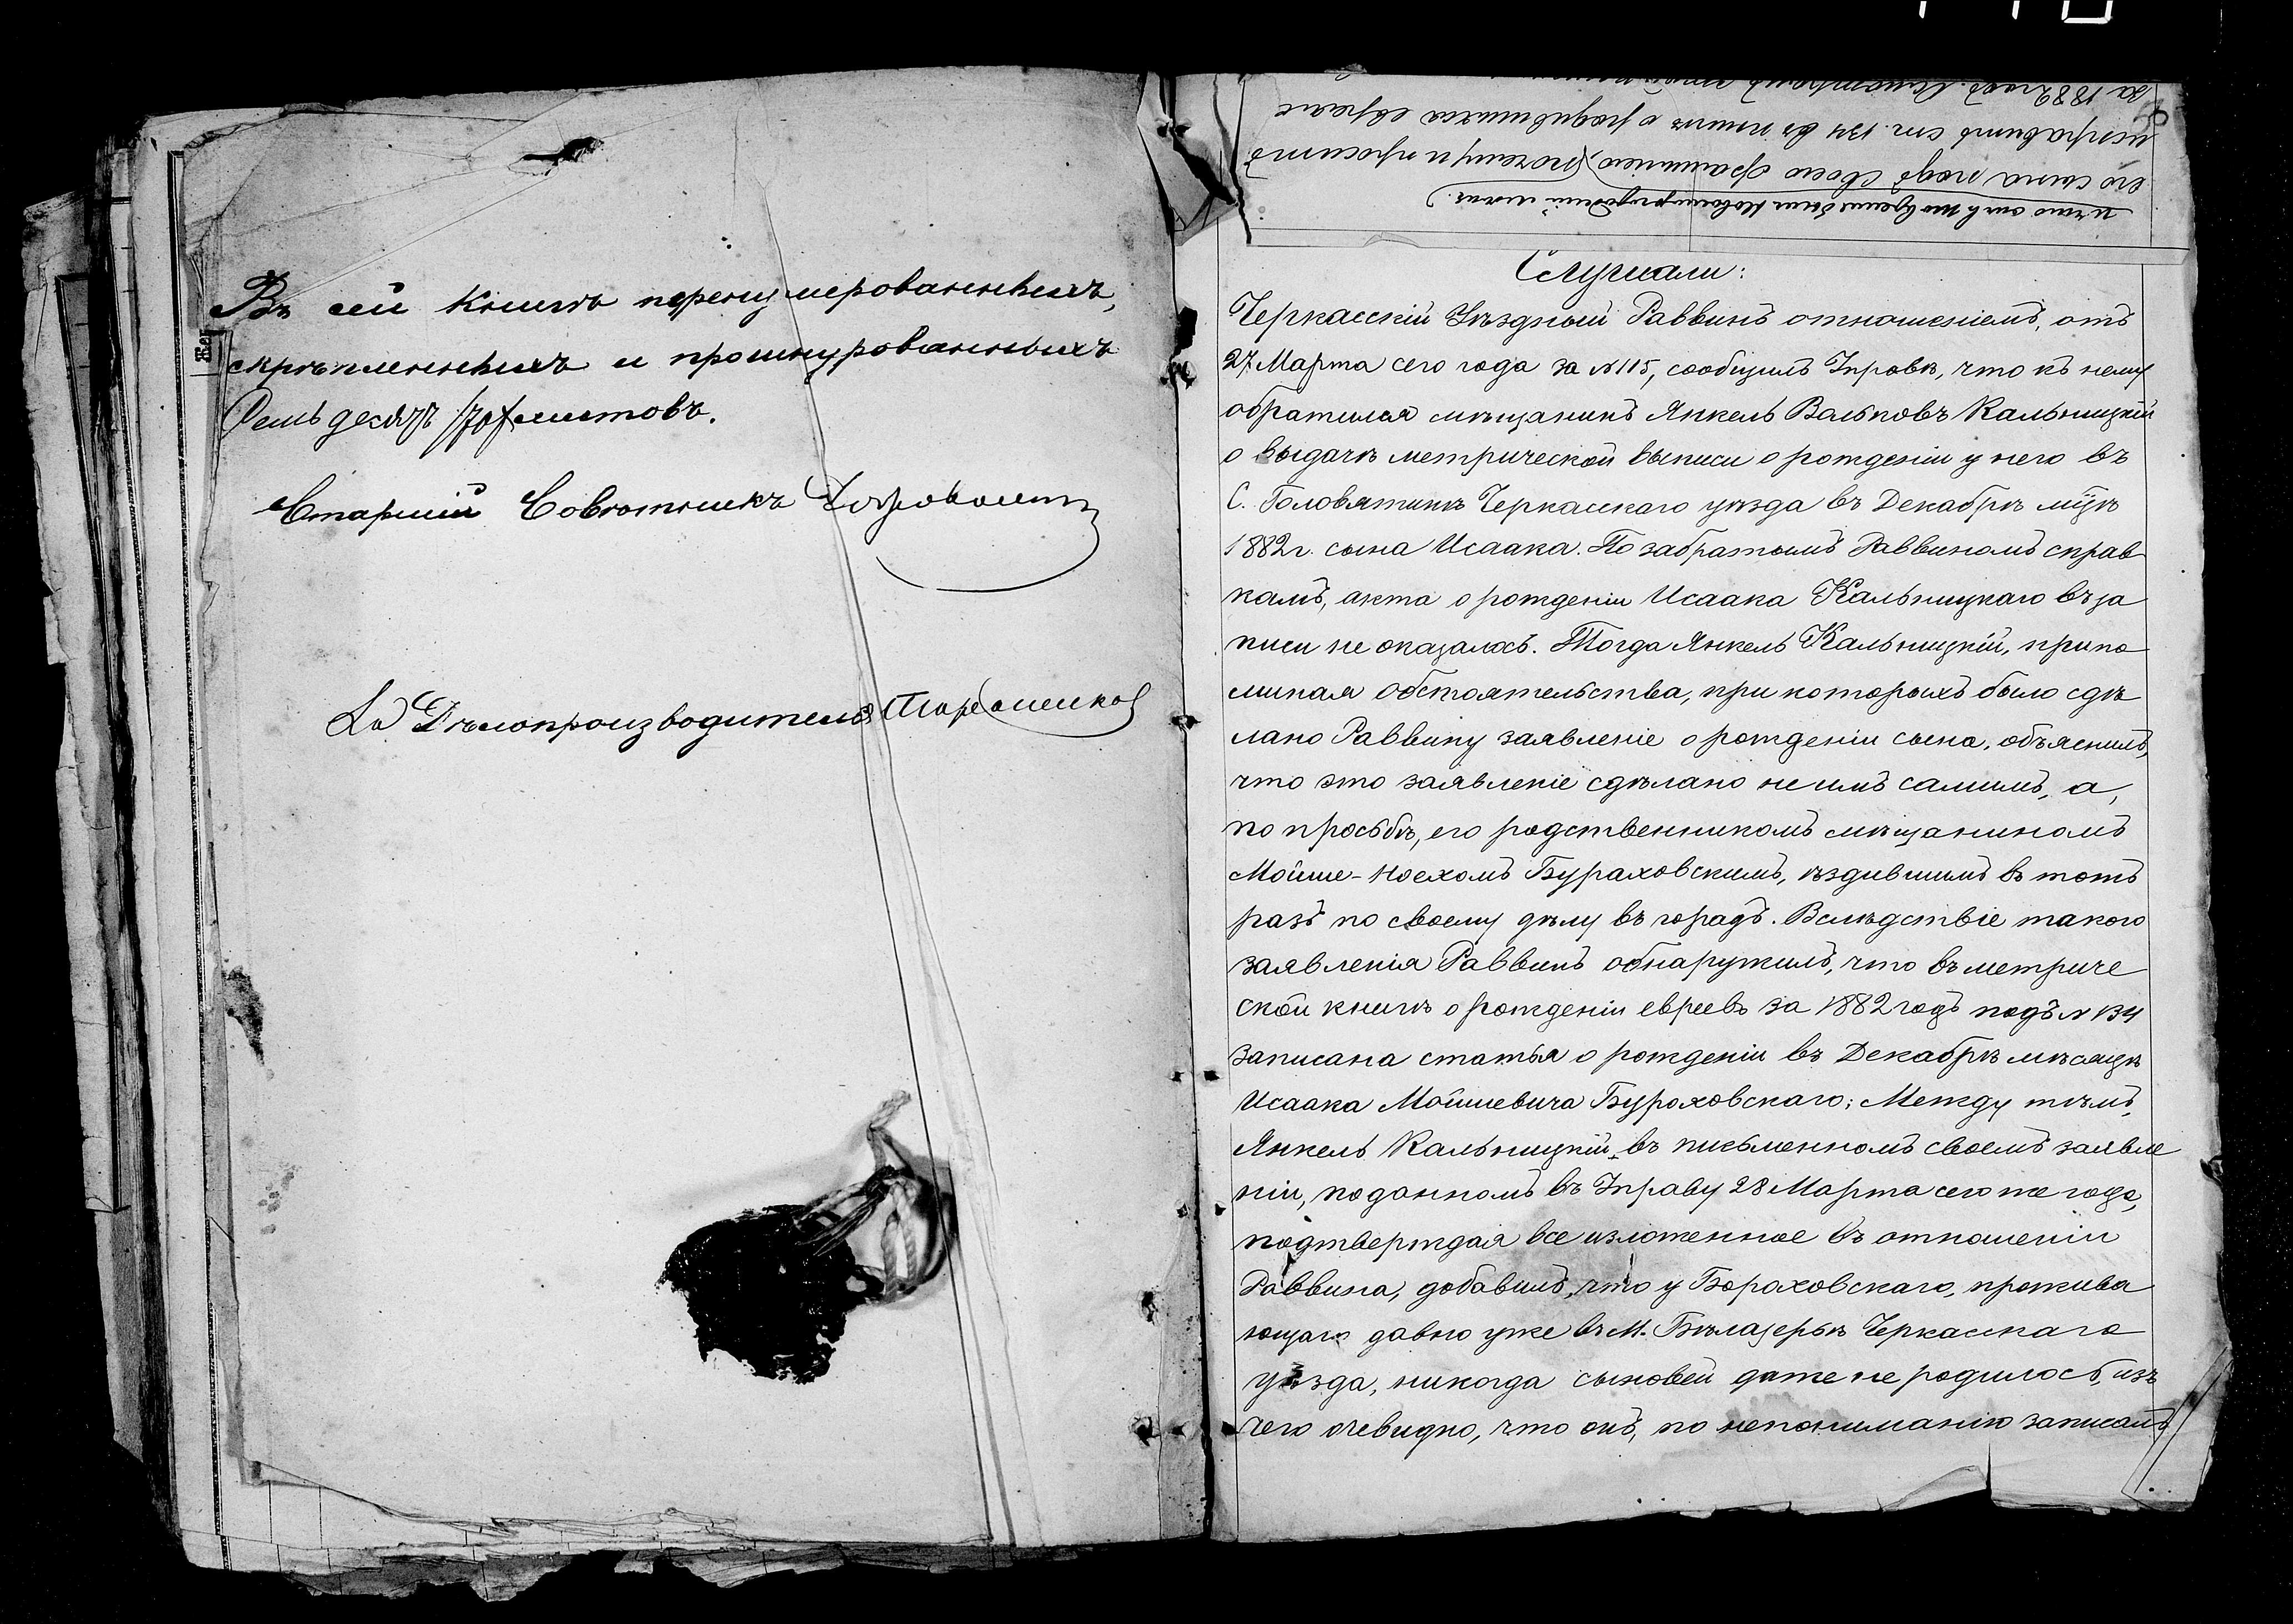 Въ сей книгѣ перенумерованныхъ,
скрѣпленныхъ и прошнурованныхъ
Семьдесятъ /70/ листовъ.
Старшій Совѣтникъ
За Дѣлопроизводителя
Жен
Слушали:
Черкасскій Уѣздный Раввинъ отношеніемъ, отъ
27 Марта сего года за №115, сообщилъ Управѣ, что къ нему
обратился мѣщанинъ Янкель Вольковъ Кальницкій
о выдачѣ метрической выписи о рожденіи у него въ
С. Головятинѣ Черкасскаго уѣзда въ Декабрѣ мцѣ
1882 г. сына Исаака. По забратымъ Раввиномъ справ
камъ, акта о рожденіи Исаака Кальницкаго въ за
писи не оказалось. Тогда Янкель Кальницкій, припо
миная обстоятельства, при которыхъ было сдѣ
лано Раввину заявленіе о рожденіи сына, объяснилъ,
что это заявленіе сдѣлано не имъ самимъ, а,
по просьбѣ, его родственникомъ мѣщаниномъ
Мойше-Ноехомъ Бураховскимъ, ѣздившимъ въ тотъ
разъ по своему дѣлу въ городъ. Вслѣдствіе такого
заявленія Раввинъ обнаружилъ, что въ метриче
ской книгѣ о рожденіи евреевъ за 1882 годъ подъ № 134
записана статья о рожденіи въ Декабрѣ мѣсяцѣ
Исаака Мойшевича Бураховскаго; Между тѣмъ,
Янкель Кальницкій въ письменномъ своемъ заявле
ніи, поданномъ въ Управу 28 Марта сего же года,
подтверждая все изложенное въ отношеніи
Раввина, добавилъ, что у Бораховскаго, прожива
ющаго давно уже въ М. Бѣлазерьѣ Черкасскаго
уѣзда, никогда сыновей даже не родилось, изъ
чего очевидно, что онъ, по непониманію записалъ
его сына подъ своею фамиліею, почему и проситъ
исправить ст. 134 въ книгѣ о родившихся евреяхъ
за 1882 годъ.